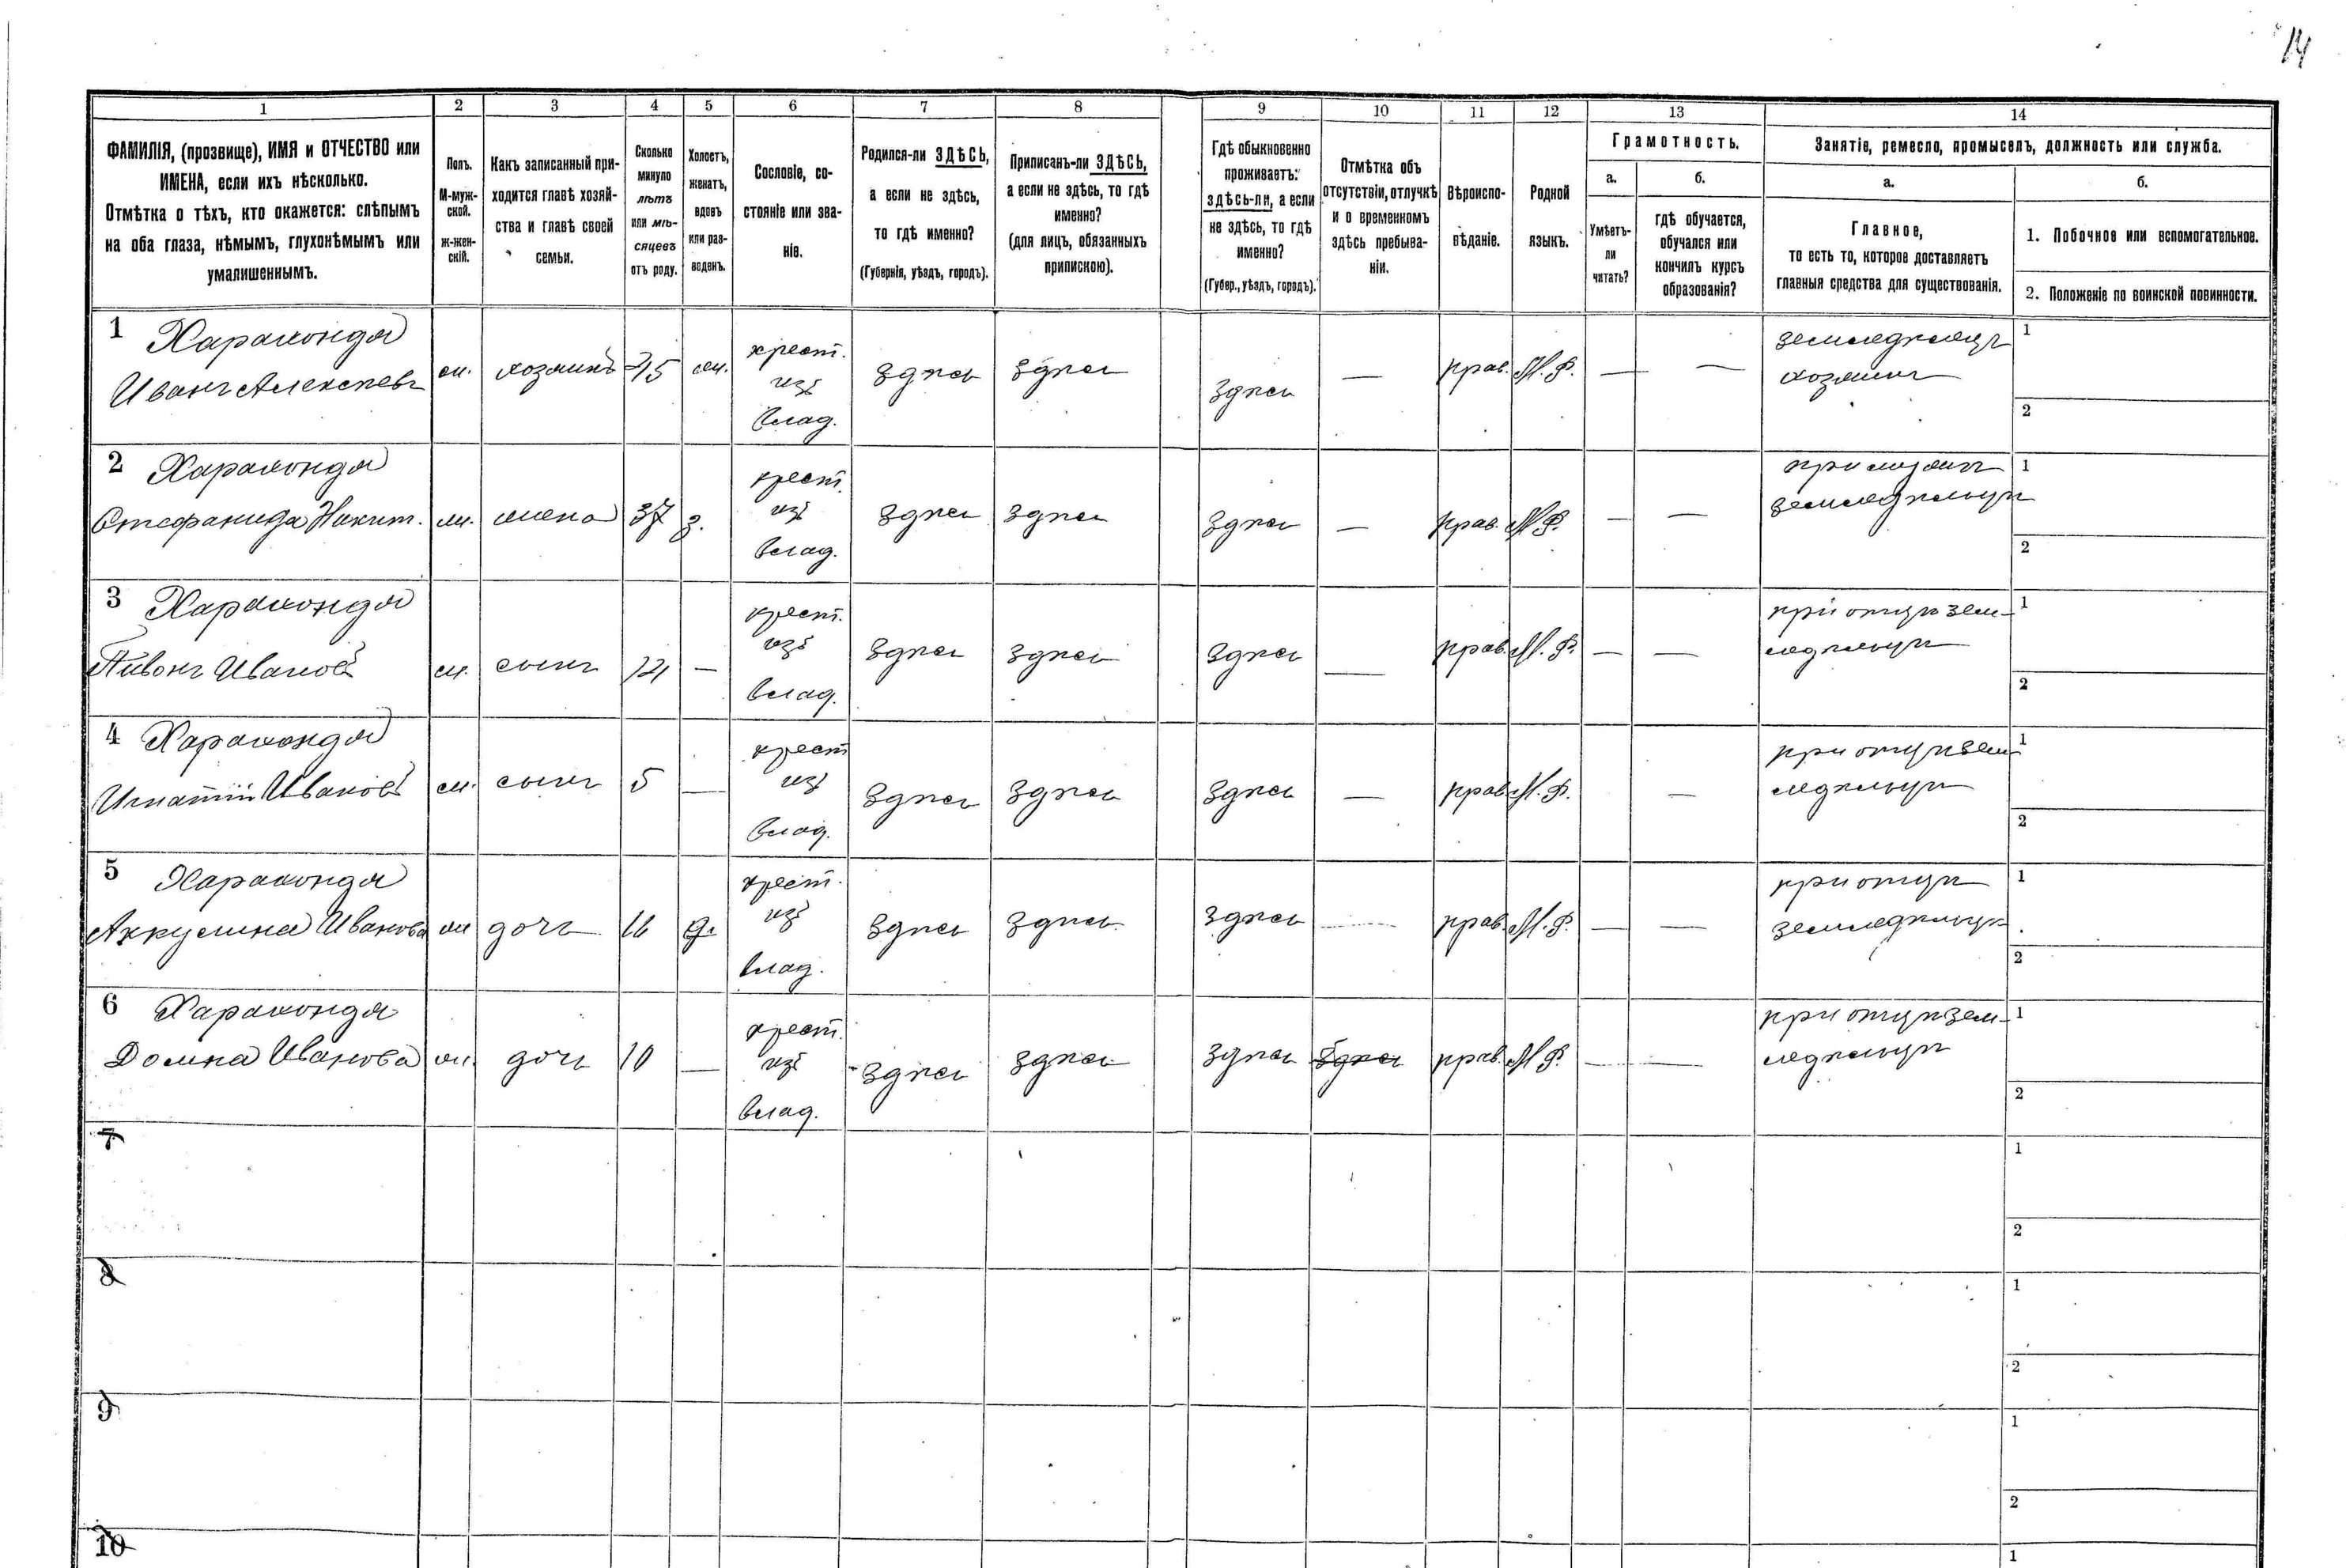 14
1
2
3
4
5
6
7
8
9
10
11
12
13
14
ФАМИЛІЯ, (прозвище), ИМЯ и ОТЧЕСТВО или
ИМЕНА, если ихъ нѣсколько.
Отмѣтка о тѣхъ, кто окажется: слѣпымъ
на оба глаза, нѣмымъ, глухонѣмымъ или
умалишеннымъ.
Полъ.
М-муж-
ской.
ж-жен-
скій.
Какъ записанный при-
ходится главѣ хозяй-
ства и главѣ своей
семьи.
Сколько
минуло
лѣтъ
или мѣ-
сяцевъ
отъ роду.
Холостъ,
женатъ,
вдовъ
или раз-
веденъ.
Сословіе, со-
стояніе или зва-
ніе.
Родился-ли ЗДѢСЬ,
а если не здѣсь,
то гдѣ именно?
(Губернія, уѣздъ, городъ).
Приписанъ-ли ЗДѢСЬ,
а если не здѣсь, то гдѣ
именно?
(для лицъ, обязанныхъ
припискою).
Гдѣ обыкновенно
проживаетъ:
здѣсь-ли, а если
не здѣсь, то гдѣ
именно?
(Губер., уѣздъ, городъ).
Отмѣтка объ
отсутствіи, отлучкѣ
и о временномъ
здѣсь пребыва-
ніи.
Вѣроиспо-
вѣданіе.
Родной
языкъ.
Грамотность.
а.
Умѣетъ-
ли
читать?
б.
гдѣ обучается,
обучался или
кончилъ курсъ
образованія?
Занятіе, ремесло, промыселъ, должность или служба.
а.
Главное,
то есть то, которое доставляетъ
главныя средства для существованія.
б.
1. Побочное или вспомогательное.
2. Положеніе по воинской повинности.
1 Хараконда
Иванъ Алексѣевъ
м. хозяинъ 45 ж. крест.
изъ
влад. здѣсь здѣсь здѣсь — прав. М. Ф. — — земледѣлецъ
хозяинъ
1
2
2 Хараконда
Стефанида Никит. ж. жена 37 з. крест.
изъ
влад. здѣсь здѣсь здѣсь — прав. М. Ф. — — при мужѣ
земледѣльцѣ
1
2
3 Хараконда
Пивонъ Ивановъ м. сынъ — крест.
изъ
влад. здѣсь здѣсь здѣсь — прав. М. Ф. — — при отцѣ зем-
ледѣльцѣ
1
2
4 Хараконда
Игнатій Ивановъ м. сынъ 5 — крест
изъ
влад. здѣсь здѣсь здѣсь — прав. М. Ф. — при отцѣ зем-
ледѣльцѣ
1
2
5 Хараконда
Аккулина Иванова ж дочь 16 д. крест.
изъ
влад. здѣсь здѣсь здѣсь — прав. М. Ф. — — при отцѣ
земледѣльцѣ
1
2
6 Хараконда
Домна Иванова ж. дочь 10 — крест.
изъ
влад. здѣсь здѣсь здѣсь здѣсь прав. М. Ф. — — при отцѣ зем-
ледѣльцѣ
1
2
7
1
2
8
1
2
9
1
2
10
1